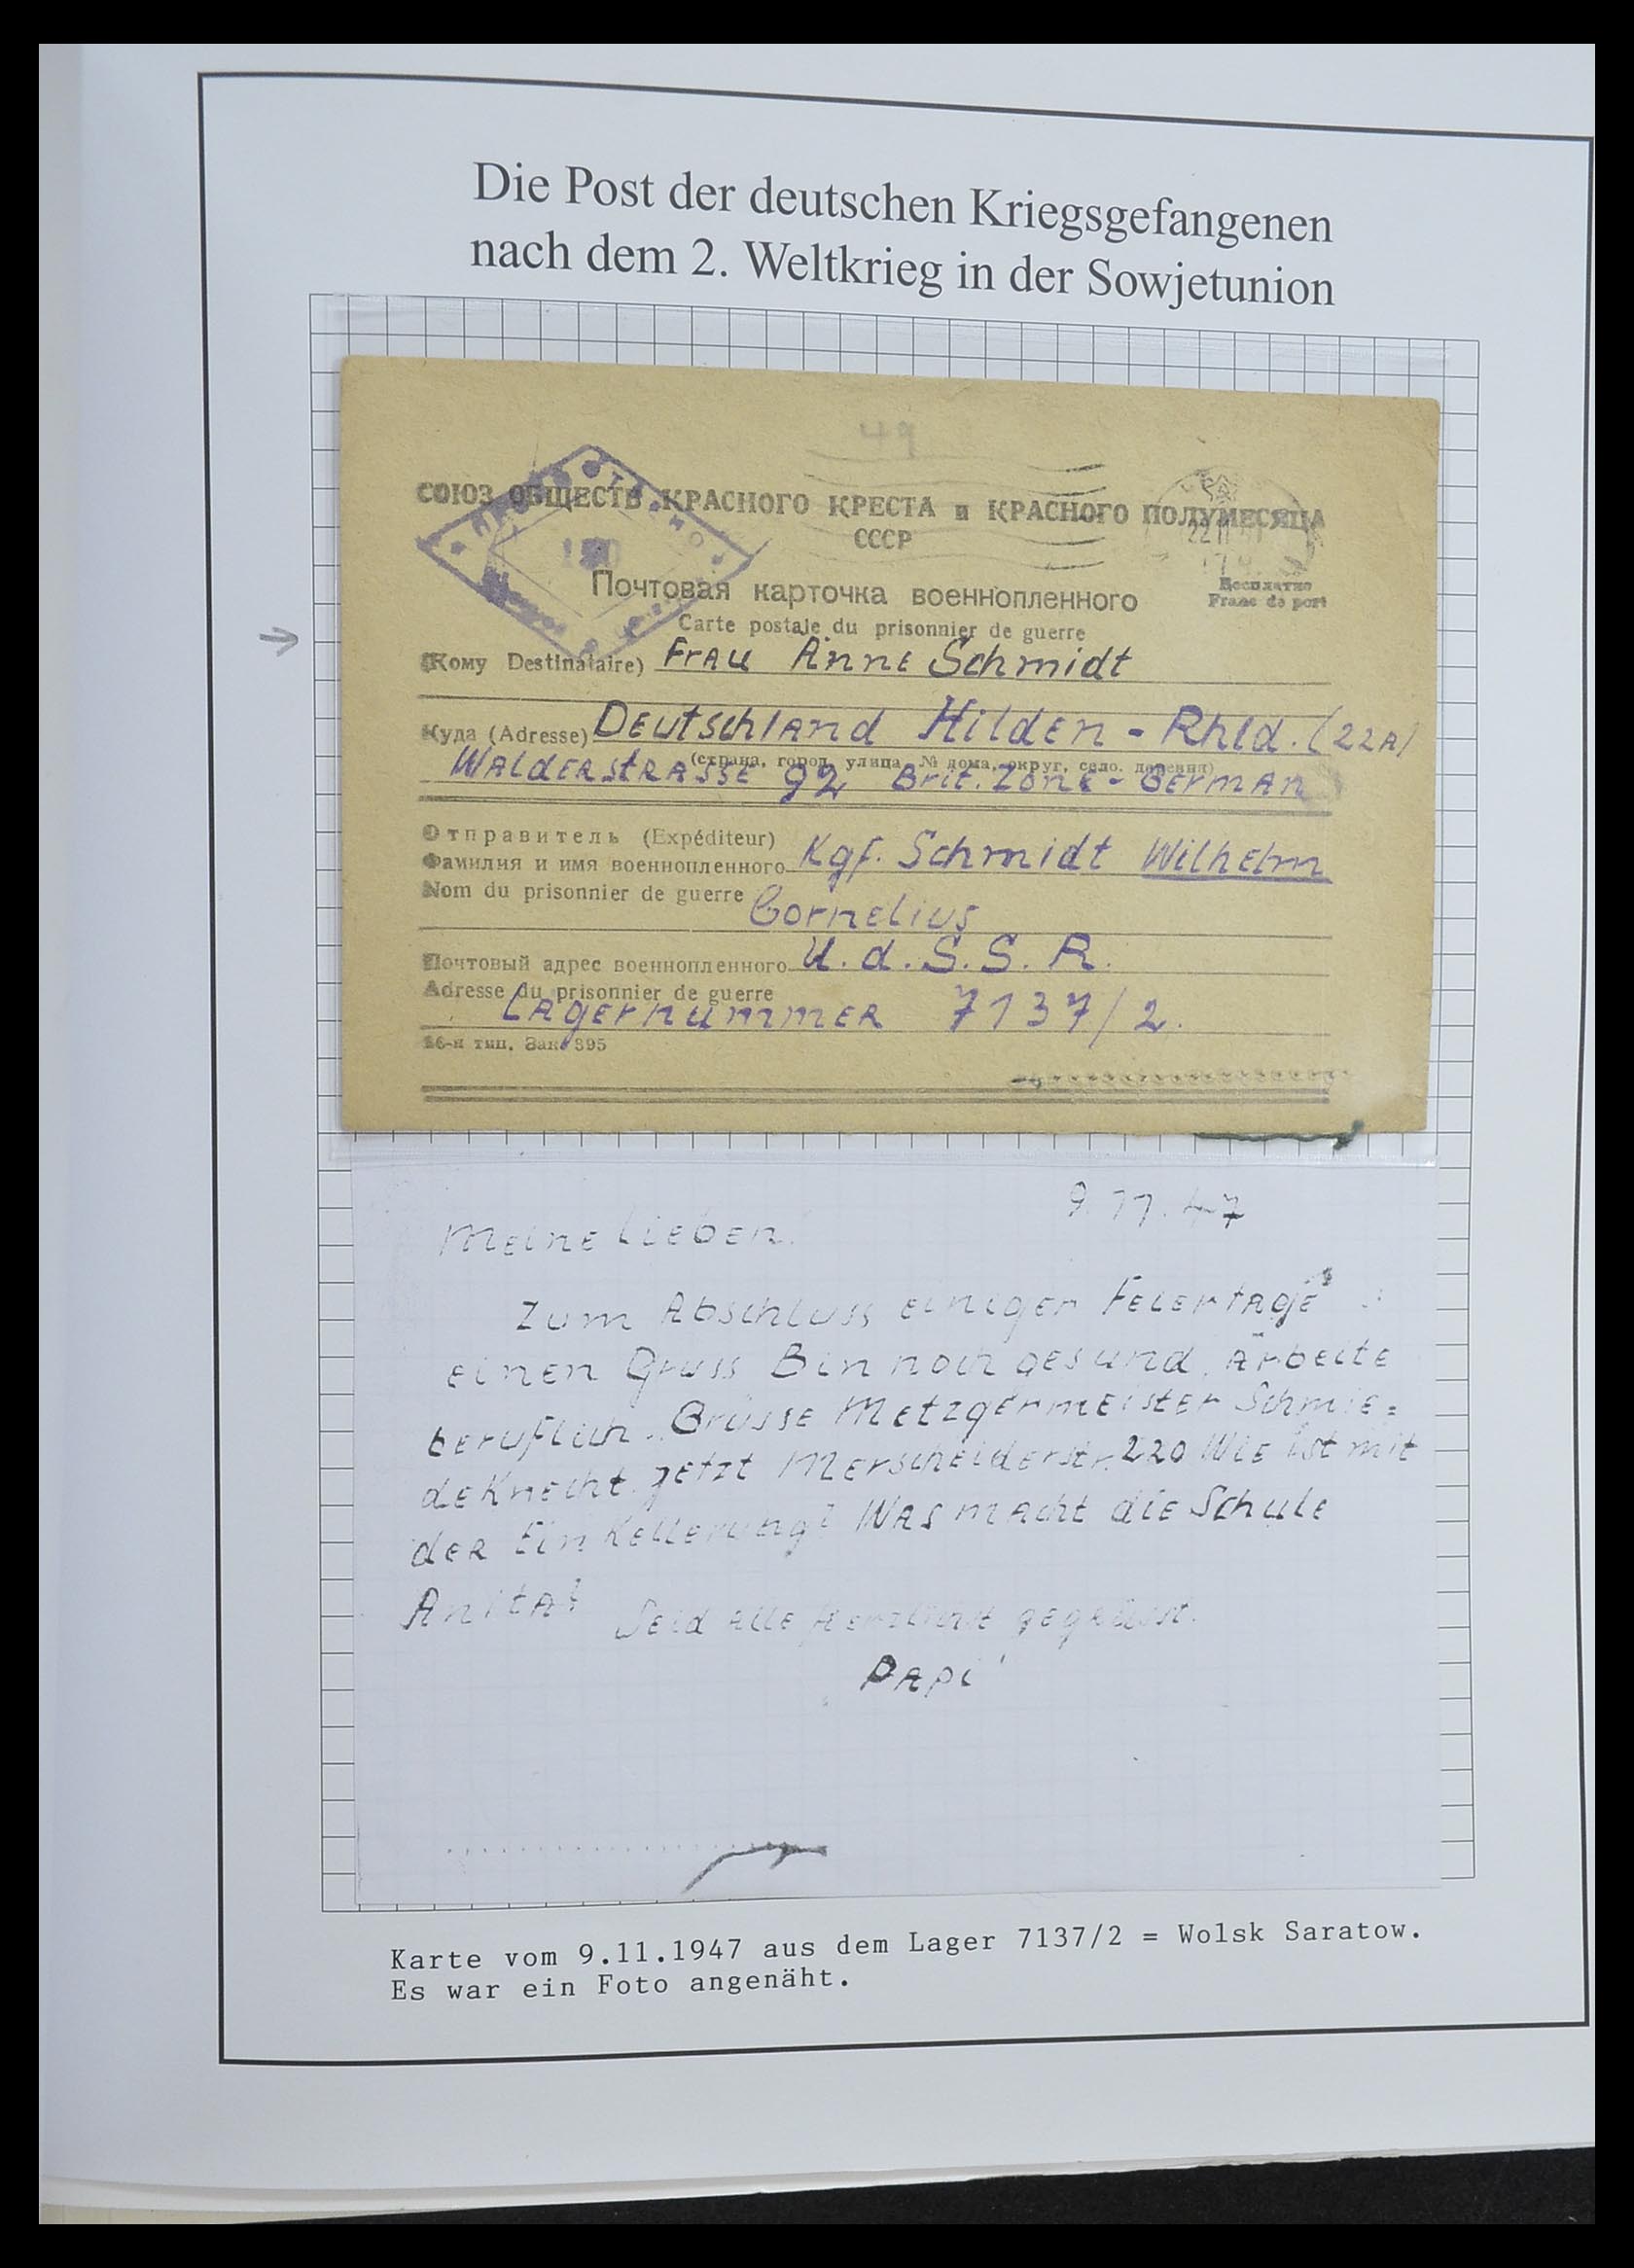 Die Post der deutschen Kriegsgefangenen
nach dem 2. Weltkrieg in der Sowjetunion
49
СОЮЗ ОБЩЕСТВ КРАСНОГО КРЕСТА и КРАСНОГО ПОЛУМЕСЯЦА
СССР
Почтовая карточка военнопленного
Бесплатно
Franc de port
Carte postale du prisonnier de guerre
(Кому Destinataire) Frau Anne Schmidt
Куда (Adresse) Deutschland Hilden - Rhld. (22A)
(страна, город, улица, № дома, округ, село, деревня)
Walderstrasse 92 Brit. Zone - German
Отправитель (Expéditeur)
Фамилия и имя военнопленного Kgf. Schmidt Wilhelm
Nom du prisonnier de guerre Cornelius
Почтовый адрес военнопленного U.d.S.S.R.
Adresse du prisonnier de guerre
Lagernummer 7137/2.
16-я тип. Зак. 395
9.11.47
Meine Lieben!
Zum Abschluss einiger Feiertage
einen Gruss Bin noch gesund. Arbeite
beruflich. Grüsse Metzgermeister Schmie=
deknecht. jetzt Merscheiderstr. 220 Wie ist mit
der Einkellerung? Was macht die Schule
Anita? Seid alle herzlichst gegrüsst.
Papi
Karte vom 9.11.1947 aus dem Lager 7137/2 = Wolsk Saratow.
Es war ein Foto angenäht.